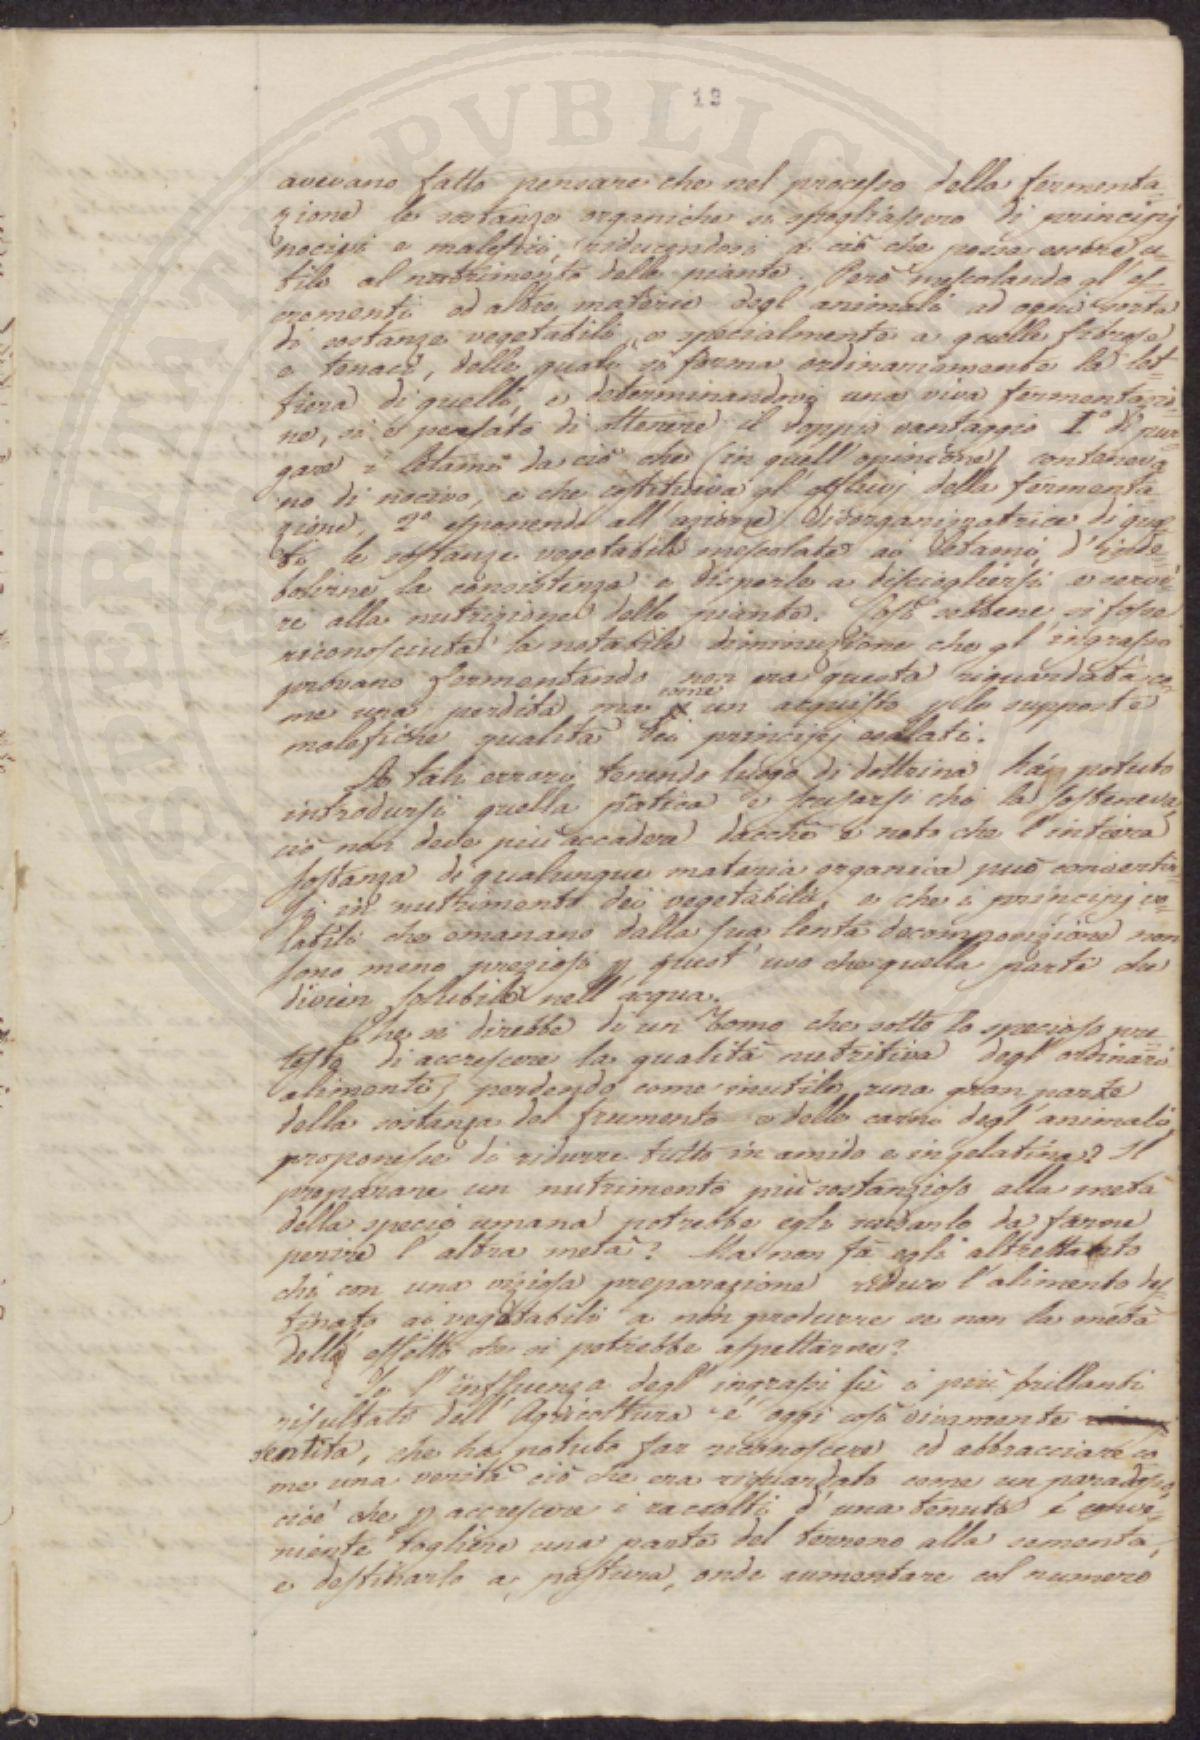 13
avevano fatto pensare che nel processo della fermenta=
zione le sostanze organiche si spogliassero di principj
nocivi e malefici, riducendosi a ciò che possa essere u=
tile al nutrimento delle piante. Però mescolando gl'es=
crementi ed altre materie degl'animali ad ogni sorta
di sostanze vegetabili, e specialmente a quelle fibrose
e tenaci, delle quali si forma ordinariamente la let=
tiera di quelli, e determinandovi una viva fermentazio=
ne, si è pensato di ottenere il doppio vantaggio I.° di pur=
gare i letami da ciò che (in quell'opinione) conteneva=
no di nocivo, e che costituiva gl'effluvj della fermenta=
zione, 2° esponendo all'azione disorganizzatrice di que=
sti le sostanze vegetabili mescolate ai letami, d'inde=
bolirne la consistenza e disporle a disciogliersi e servi=
re alla nutrizione delle piante. Così sebbene si fosse
riconosciuta la notabile diminuzione che gl'ingrassi
provano fermentando, non era questa riguardata co=
me una perdita, ma come un acquisto p le supposte
malefiche qualità dei principj esalati.
A tali errori, tenendo luogo di dottrina há potuto
introdursi quella pratica e scusarsi chi la sosteneva,
ciò non deve più accadere dacchè è noto che l'intiera
sostanza di qualunque materia organica può convertir=
si in nutrimento dei vegetabili, e che i principj vo=
latili che emanano dalla sua lenta decomposizione non
sono meno preziosi p quest'uso che quella parte che
divien solubile nell'acqua.
Che si direbbe di un Uomo che sotto lo specioso pre=
testo di accrescere la qualità nutritiva degl'ordinari
alimenti, perdendo come inutile una gran parte
della sostanza del frumento e delle carni degl'animali
proponesse di ridurre tutto in amido e in gelatina? Il
preparare un nutrimento più sostanzioso alla metà
della specie umana potrebbe egli salvarlo da farne
perire l'altra metà? Ma non fà egli altrettanto
chi con una viziosa preparazione riduce l'alimento des=
tinato ai vegetabili a non produrre se non la metà
dello effetto che si potrebbe aspettarne?
Se l'influenza degl'ingrassi sù i più brillanti
risultati dell'Agricoltura è oggi così vivamente
sentita, che ha potuto far riconoscere ed abbracciare co
me una verità ciò che era riguardato come un paradosso,
cioè che p accrescere i raccolti d'una tenuta è conve=
niente togliere una parte del terreno alla sementa,
e destinarlo a pastura, onde aumentare col numero